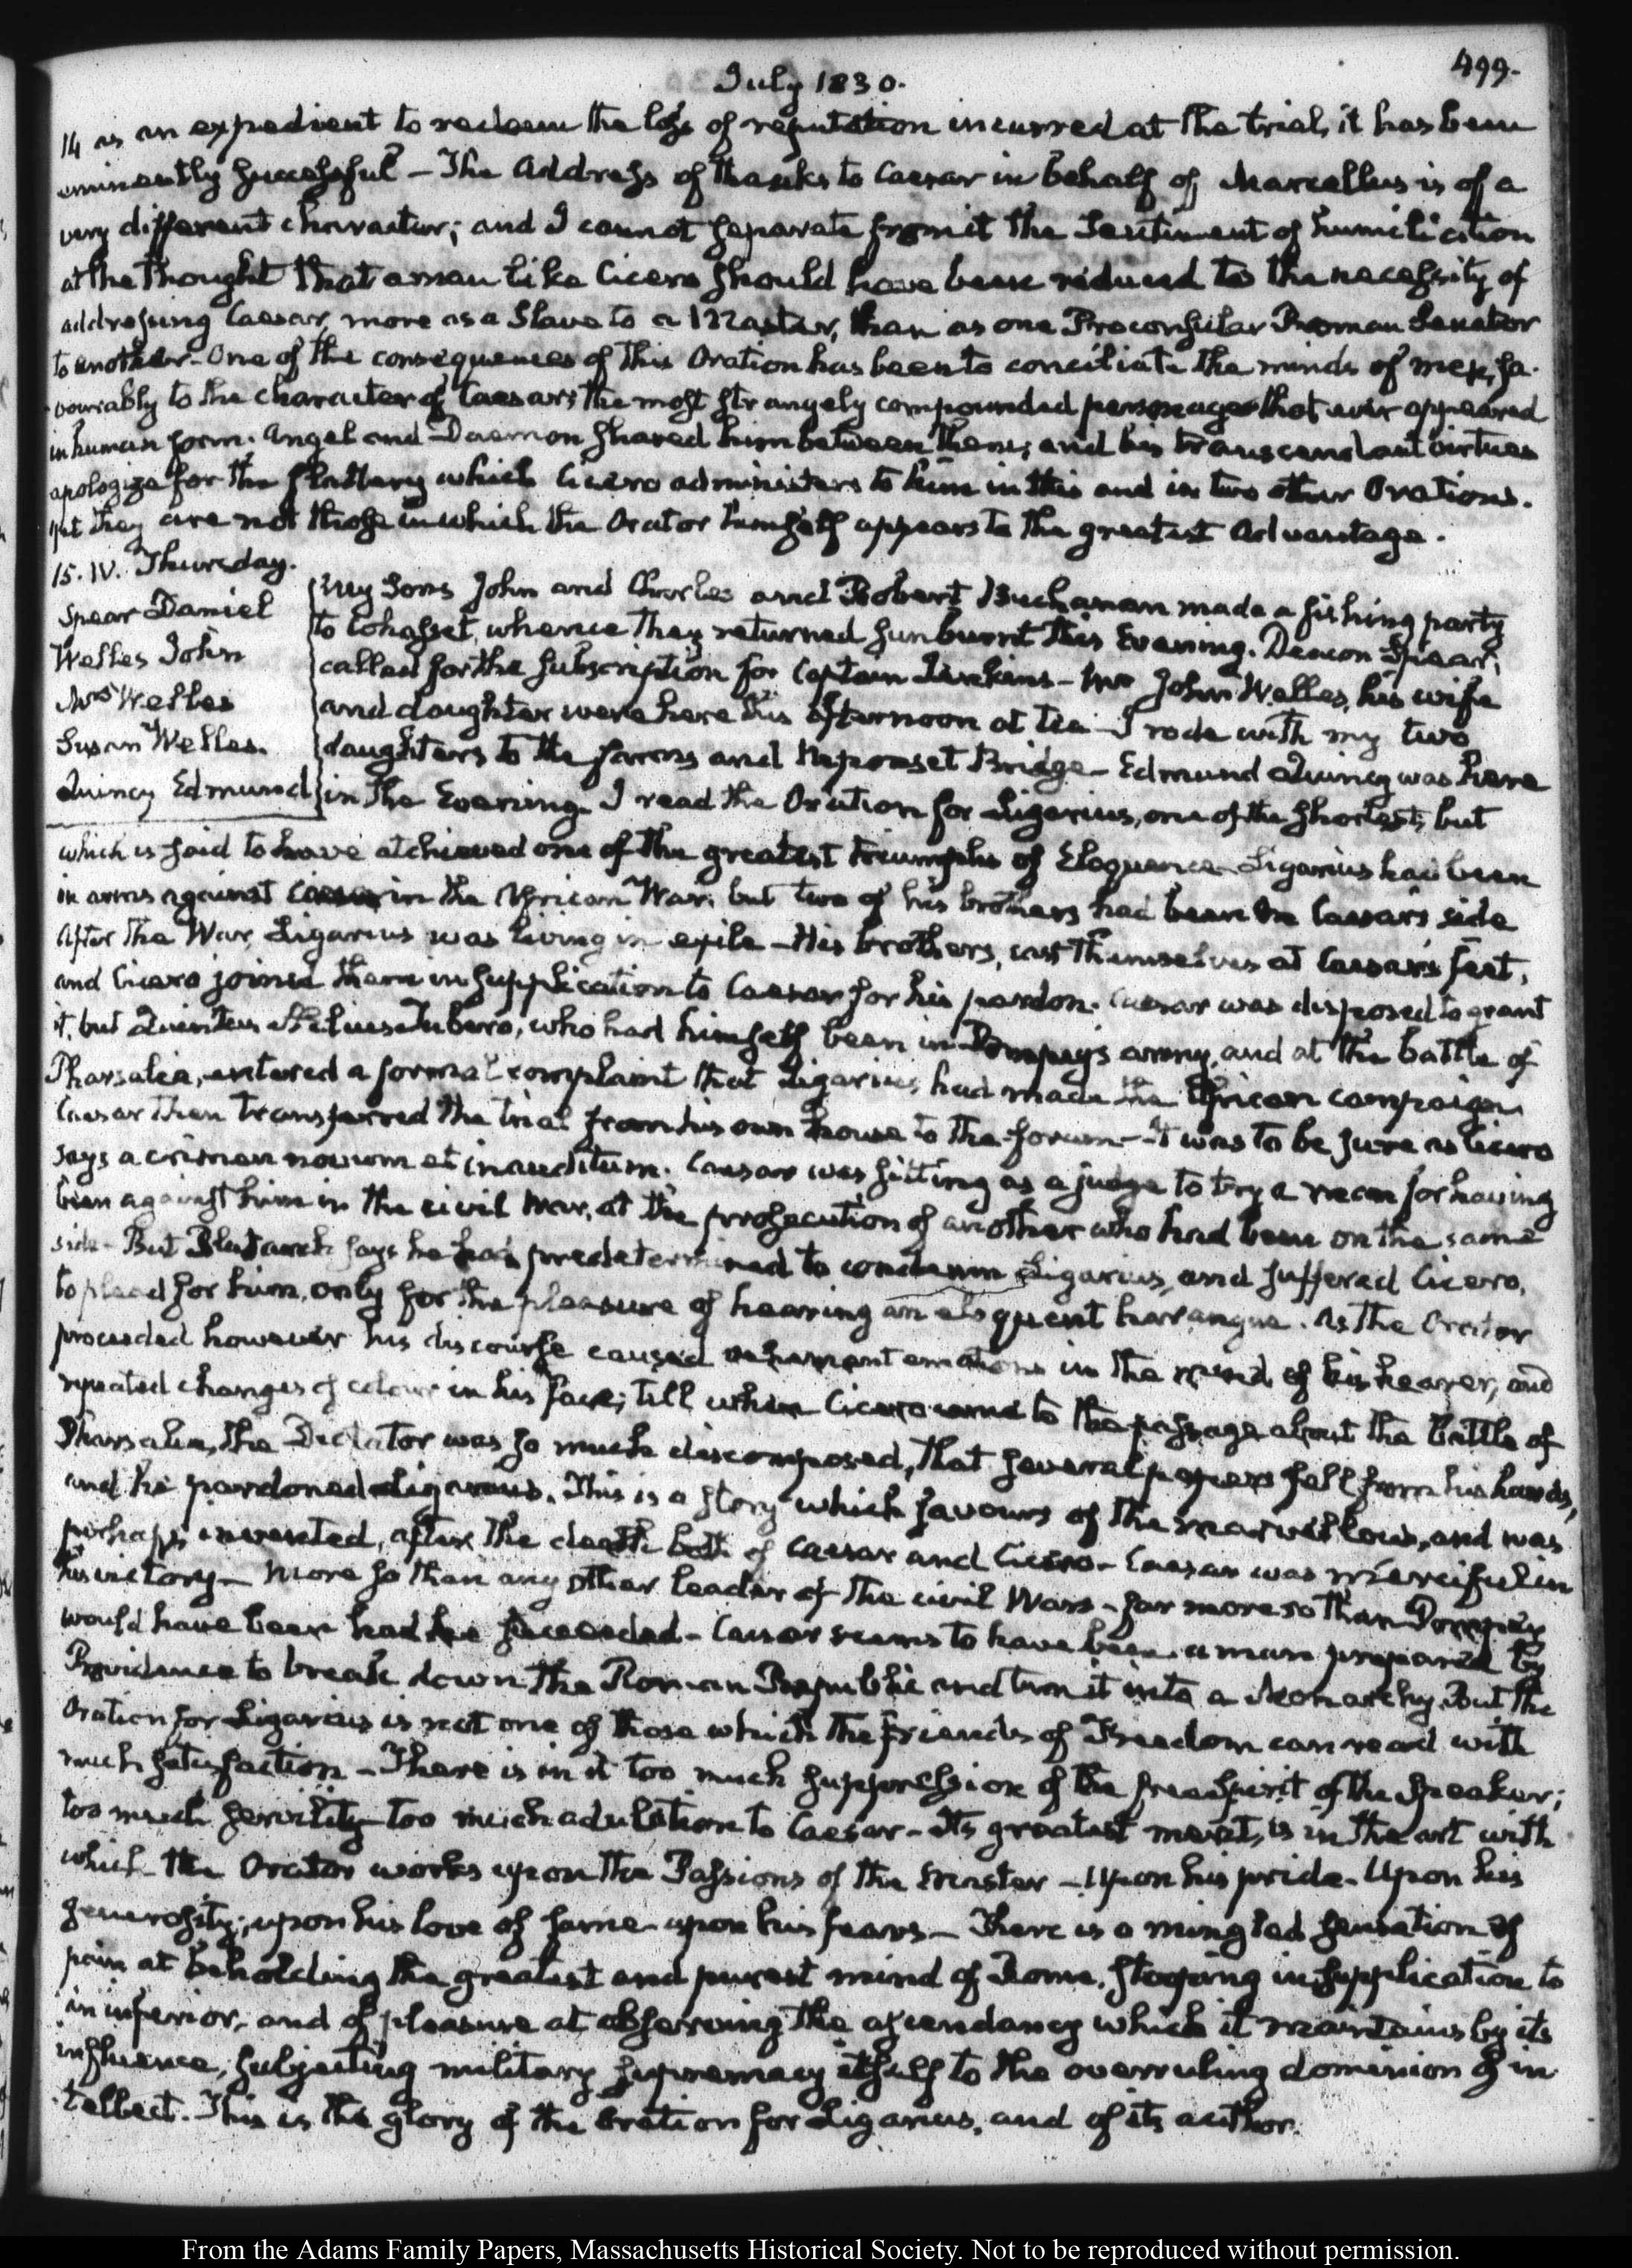 499.
July 1830.
14 as an expedient to redeem the loss of reputation incurred at the trial, it has been
eminently successful – The Address of thanks to Caesar in behalf of Marcellus is of a
very different character; and I cannot separate from it the Sentiment of humiliation
at the thought that a man like Cicero should have been reduced to the necessity of
addressing Caesar, more as a Slave to a Master, than as one Proconsular Roman Senator
to another – One of the consequences of this Oration has been to conciliate the minds of men, fa-
vourably to the character of Caesar; the most strangely compounded personage that ever appeared
in human form. Angel and Daemon shared him between them; and his transcendant virtues
apologize for the flattery which Cicero administers to him in this and in two other Orations.
yet they are not those in which the Orator himself appears to the greatest Advantage.
15. IV. Thursday.
Spear Daniel
Welles John
Mrs Welles
Susan Welles.
Quincy Edmund
My Sons John and Charles and Robert Buchanan made a fishing party
to Cohasset, whence they returned sunburnt this Evening. Deacon Spear,
called for the subscription for Captain – Mr John Welles, his wife
and daughter were here this afternoon at tea – I rode with my two
daughters to the farms and Neponset Bridge – Edmund Quincy was here
in the Evening. I read the Oration for Ligarius, one of the shortest; but
which is said to have atchieved one of the greatest triumphs of Eloquence – Ligarius had been
in arms against Caesar in the African War; but two of his brothers had been on Caesar's side
After the War, Ligarius was living in exile – His brothers, cast themselves at Caesar's feet,
and Cicero joined them in supplication to Caesar for his pardon. Caesar was disposed to grant
it, but Quintus Aelius Tubero, who had himself been in Pompey's army, and at the battle of
Pharsalia, entered a formal complaint that Ligarius, had made the African campaign
Caesar then transferred the trial from his own house to the forum – It was to be sure as Cicero
says a crimen novum et inauditum. Caesar was sitting as a judge to try a man for having
been against him in the civil War, at the prosecution of another who had been on the same
side – But Plutarch says he had predetermined to condemn Ligarius, and suffered Cicero,
to plead for him, only for the pleasure of hearing an eloquent harangue. As the Orator
proceeded however his discourse caused vehement emotions in the mind of his hearer, and
repeated changes of colour in his face; till when Cicero came to the passage about the battle of
Pharsalia, the Dictator was so much discomposed, that several papers fell from his hands,
and he pardoned Ligarius. This is a story which savours of the marvellous, and was
perhaps invented, after the death both of Caesar and Cicero – Caesar was merciful in
his victory – more so than any other leader of the civil Wars – far more so than Pompey
would have been had he succeeded – Caesar seems to have been a man prepared by
Providence to break down the Roman Republic and turn it into a Monarchy. But the
Oration for Ligarius is not one of those which the friends of Freedom can read with
much satisfaction – There is in it too much suppression of the free spirit of the Speaker;
too much servility – too much adulation to Caesar – Its greatest merit, is in the art with
which the Orator works upon the Passions of the Master – Upon his pride – Upon his
generosity; upon his love of fame – upon his fears – There is a mingled sensation of
pain at beholding the greatest and purest mind of Rome, stooping in supplication to
an inferior, and of pleasure at observing the ascendancy which it maintains by its
influence, subjecting military supremacy itself to the overruling dominion of in-
tellect. This is the glory of the Oration for Ligarius, and of its author.
From the Adams Family Papers, Massachusetts Historical Society. Not to be reproduced without permission.